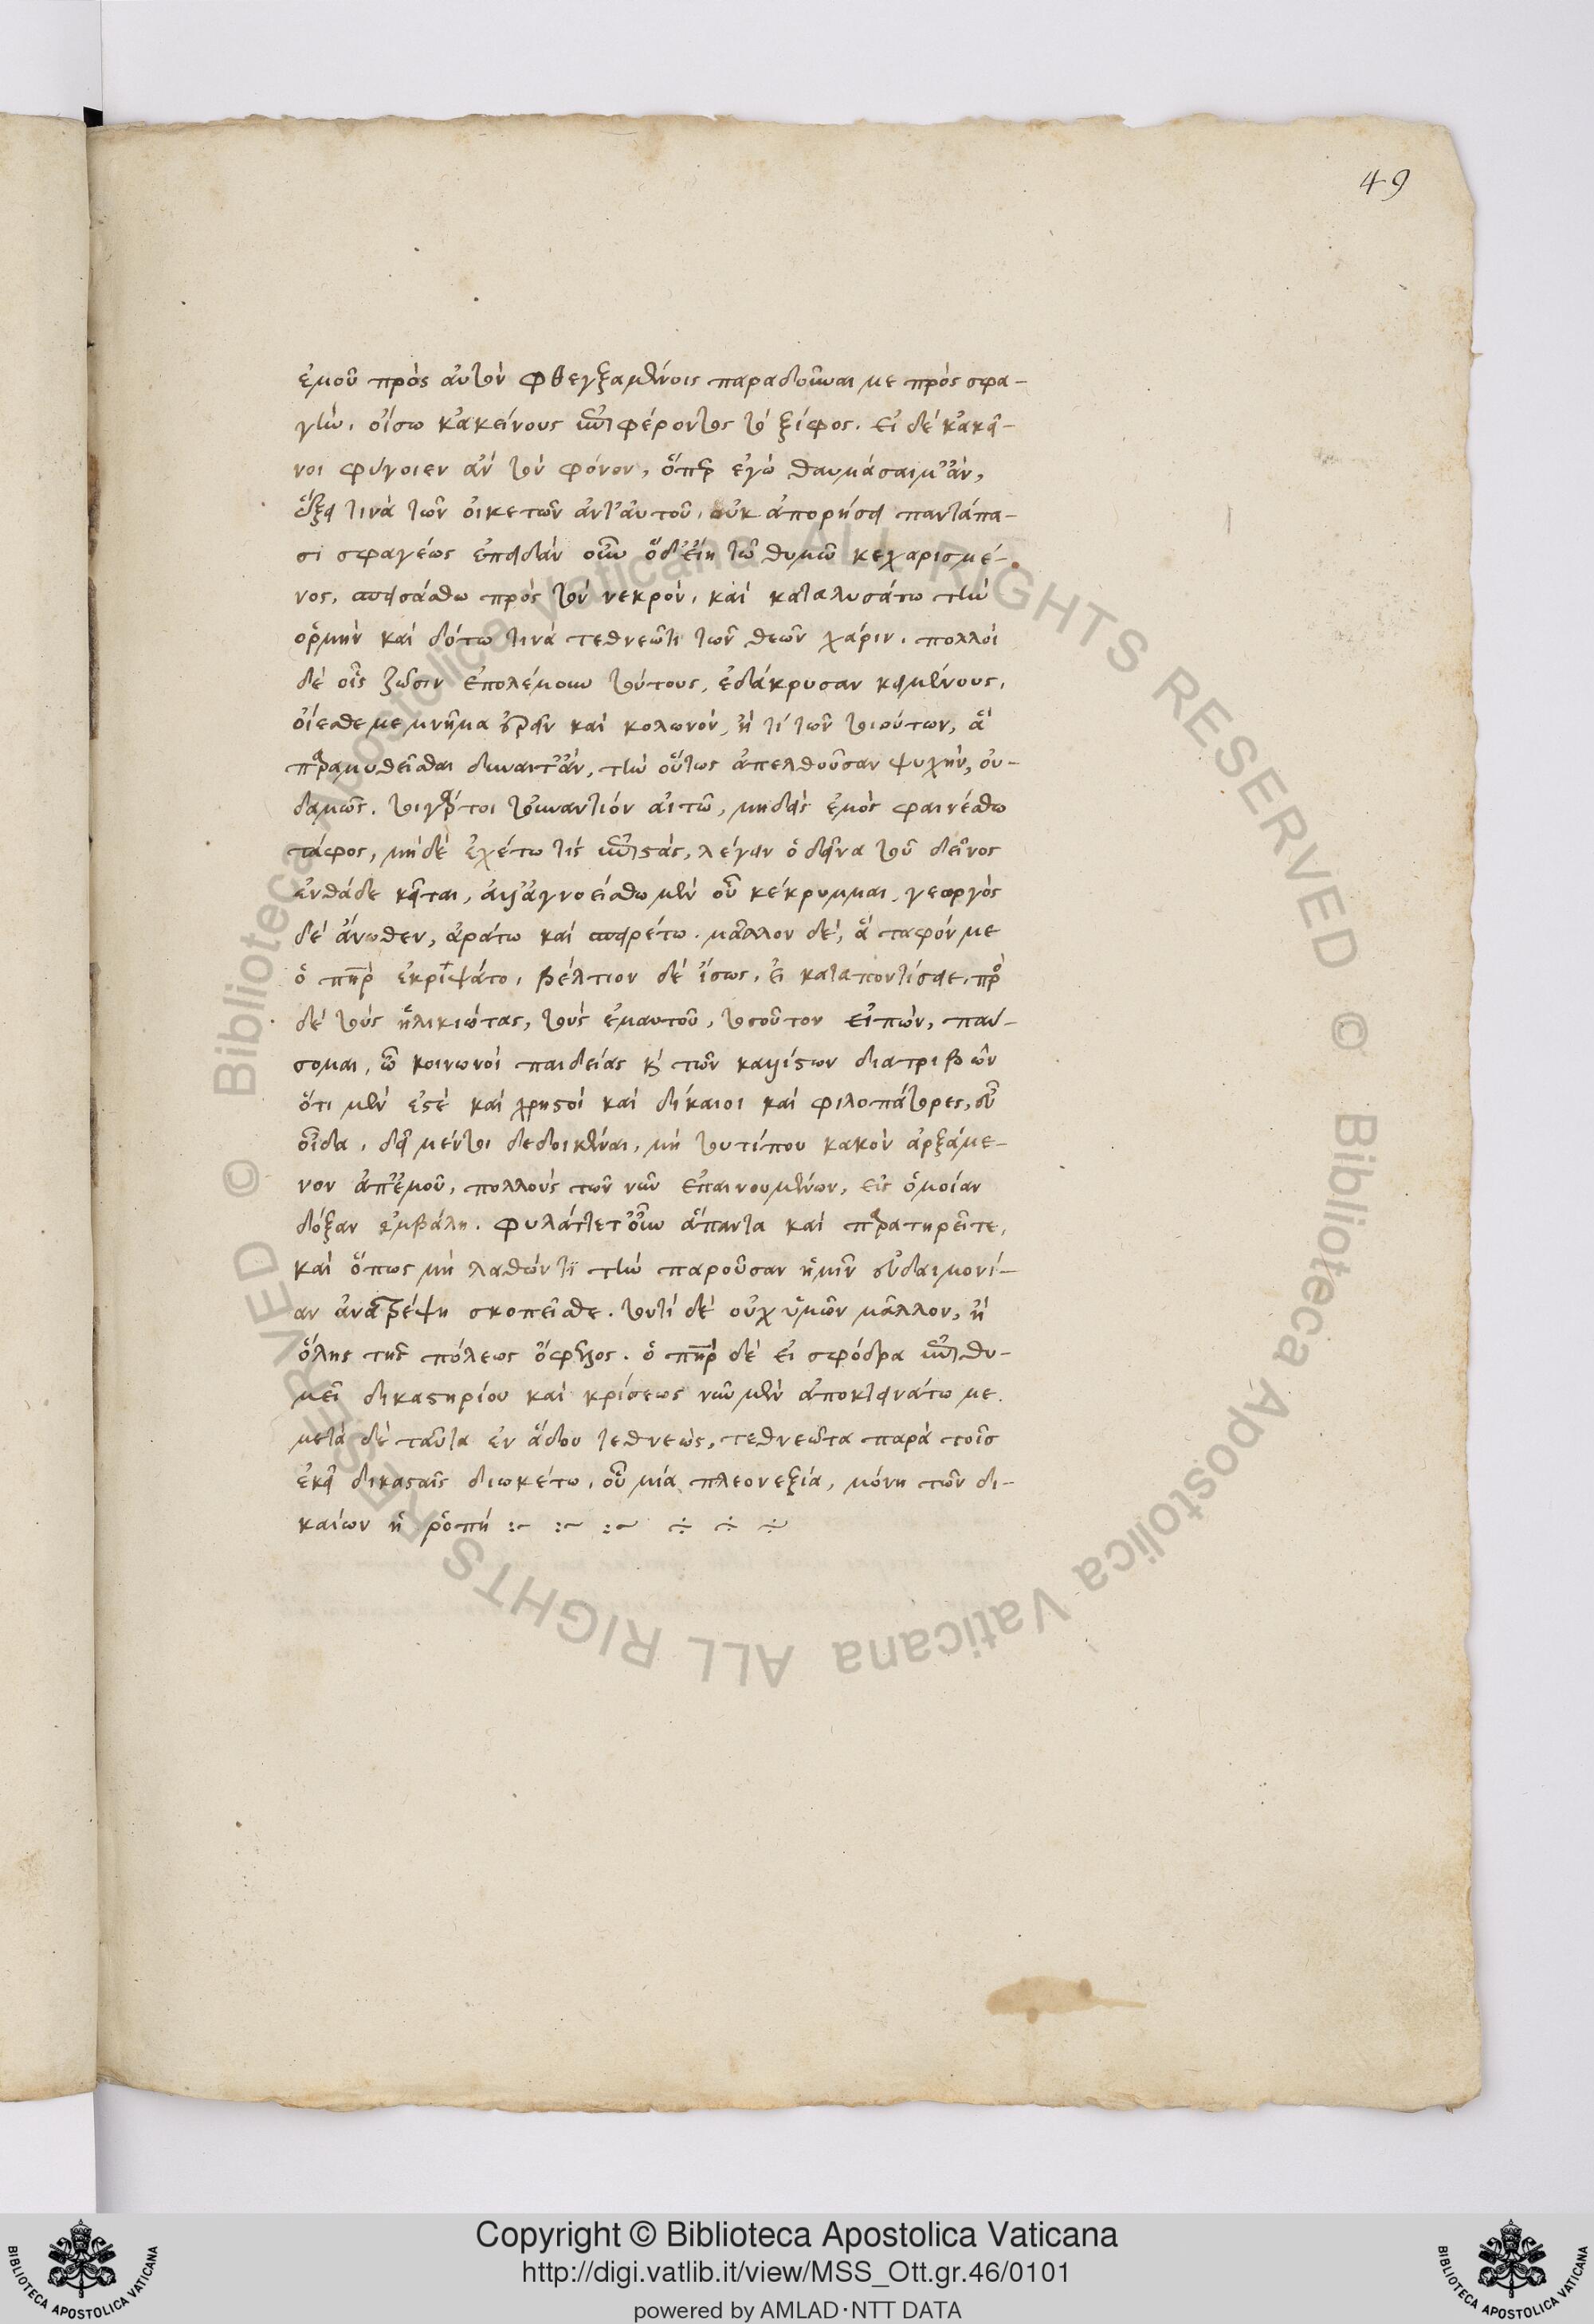 49
ἐμοῦ πρὸς αὐτὸν φθεγξαμένοις παραδοῦναι με πρὸς σφα-
γὴν. οἴσω κἀκείνους ἐπιφέροντας τὸ ξίφος. εἰ δὲ κἀκεῖ-
νοι φύγοιεν ἂν τὸν φόνον, ὅπερ ἐγὼ θαυμάσαιμ’ ἂν,
ἕξει τινὰ τῶν οἰκετῶν ἀντ’ αὐτοῦ. οὐκ ἀπορήσει παντάπα-
σι σφαγέως ἐπειδὰν οὖν ὅδ’ εἴη τῶ θυμῶ κεχαρισμέ-
νος, σπεισάσθω πρὸς τὸν νεκρὸν. καὶ καταλυσάτω τὴν
ὁρμὴν καὶ δότω τινὰ τεθνεῶτι τῶν θεῶν χάριν. πολλοὶ
δὲ οἷς ζῶσιν ἐπολέμουν τούτους, ἐδάκρυσαν κειμένους.
οἴεσθε με μνῆμα ἐρεῖν καὶ κολωνὸν, ἢ τί τῶν τοιούτων, ἃ
παραμυθεῖσθαι δύναιτ’ ἂν, τὴν οὕτως ἀπελθοῦσαν ψυχὴν, οὐ-
δαμῶς. τοιγάρτοι τοὐναντίον αἰτῶ, μηδεὶς ἐμὸς φαινέσθω
τάφος, μηδὲ ἐχέτω τίς ἐπιστὰς, λέγειν ὁ δεῖνα τοῦ δεῖνος
ἐνθάδε κεῖται, ἀλλ’ ἀγνοείσθω μὲν οὗ κέκρυμμαι. γεωργὸς
δὲ ἄνωθεν, ἀράτω καὶ σπειρέτω. μᾶλλον δὲ, ἄταφόν με
ὁ πηρ ἐκριψάτο. βέλτιον δὲ ἴσως, εἰ καταποντίσειε. πρὸ
δὲ τοὺς ἡλικιώτας, τοὺς ἐμαυτοῦ, τοσοῦτον εἰπὼν, παύ-
σομαι, ὦ κοινωνοὶ παιδείας καὶ τῶν καλλίστων διατριβῶν
ὅτι μὲν ἐστὲ καὶ χρηστοὶ καὶ δίκαιοι καὶ φιλοπάτορες, εὖ
οἶδα. δεῖ μέντοι δεδοικέναι, μὴ τουτί που κακὸν ἀρξάμε-
νον ἀπ’ ἐμοῦ, πολλοὺς τῶν νῦν ἐπαινουμένων, εἰς ὁμοίαν
δόξαν ἐμβάλη. φυλάττετ’ οὖν ἅπαντα καὶ παρατηρεῖτε,
καὶ ὅπως μὴ λαθών τι τὴν παροῦσαν ἡμῖν εὐδαιμονί-
αν ἀνατρέψη σκοπεῖσθε. τουτὶ δὲ οὐχ ὑμῶν μᾶλλον, ἢ
ὅλης τῆς πόλεως ὄφελος. ὁ πηρ δὲ εἰ σφόδρα ἐπιθυ-
μεῖ δικαστηρίου καὶ κρίσεως νῦν μὲν ἀποκτεινάτω με.
μετὰ δὲ ταῦτα ἐν ἅδου τεθνεὼς, τεθνεῶτα παρὰ τοῖς
ἐκεῖ δικασταῖς διωκέτω. οὗ μία πλεονεξία, μόνη τῶν δι-
καίων ἡ ῥοπή :~ :~ :~ ÷ ÷ ÷
© Biblioteca Apostolica Vaticana ALL RIGHTS RESERVED © Biblioteca Apostolica Vaticana ALL RIGHTS RESERVED
Copyright © Biblioteca Apostolica Vaticana
http://digi.vatlib.it/view/MSS_Ott.gr.46/0101
powered by AMLAD·NTT DATA
BIBLIOTECA APOSTOLICA VATICANA
BIBLIOTECA APOSTOLICA VATICANA